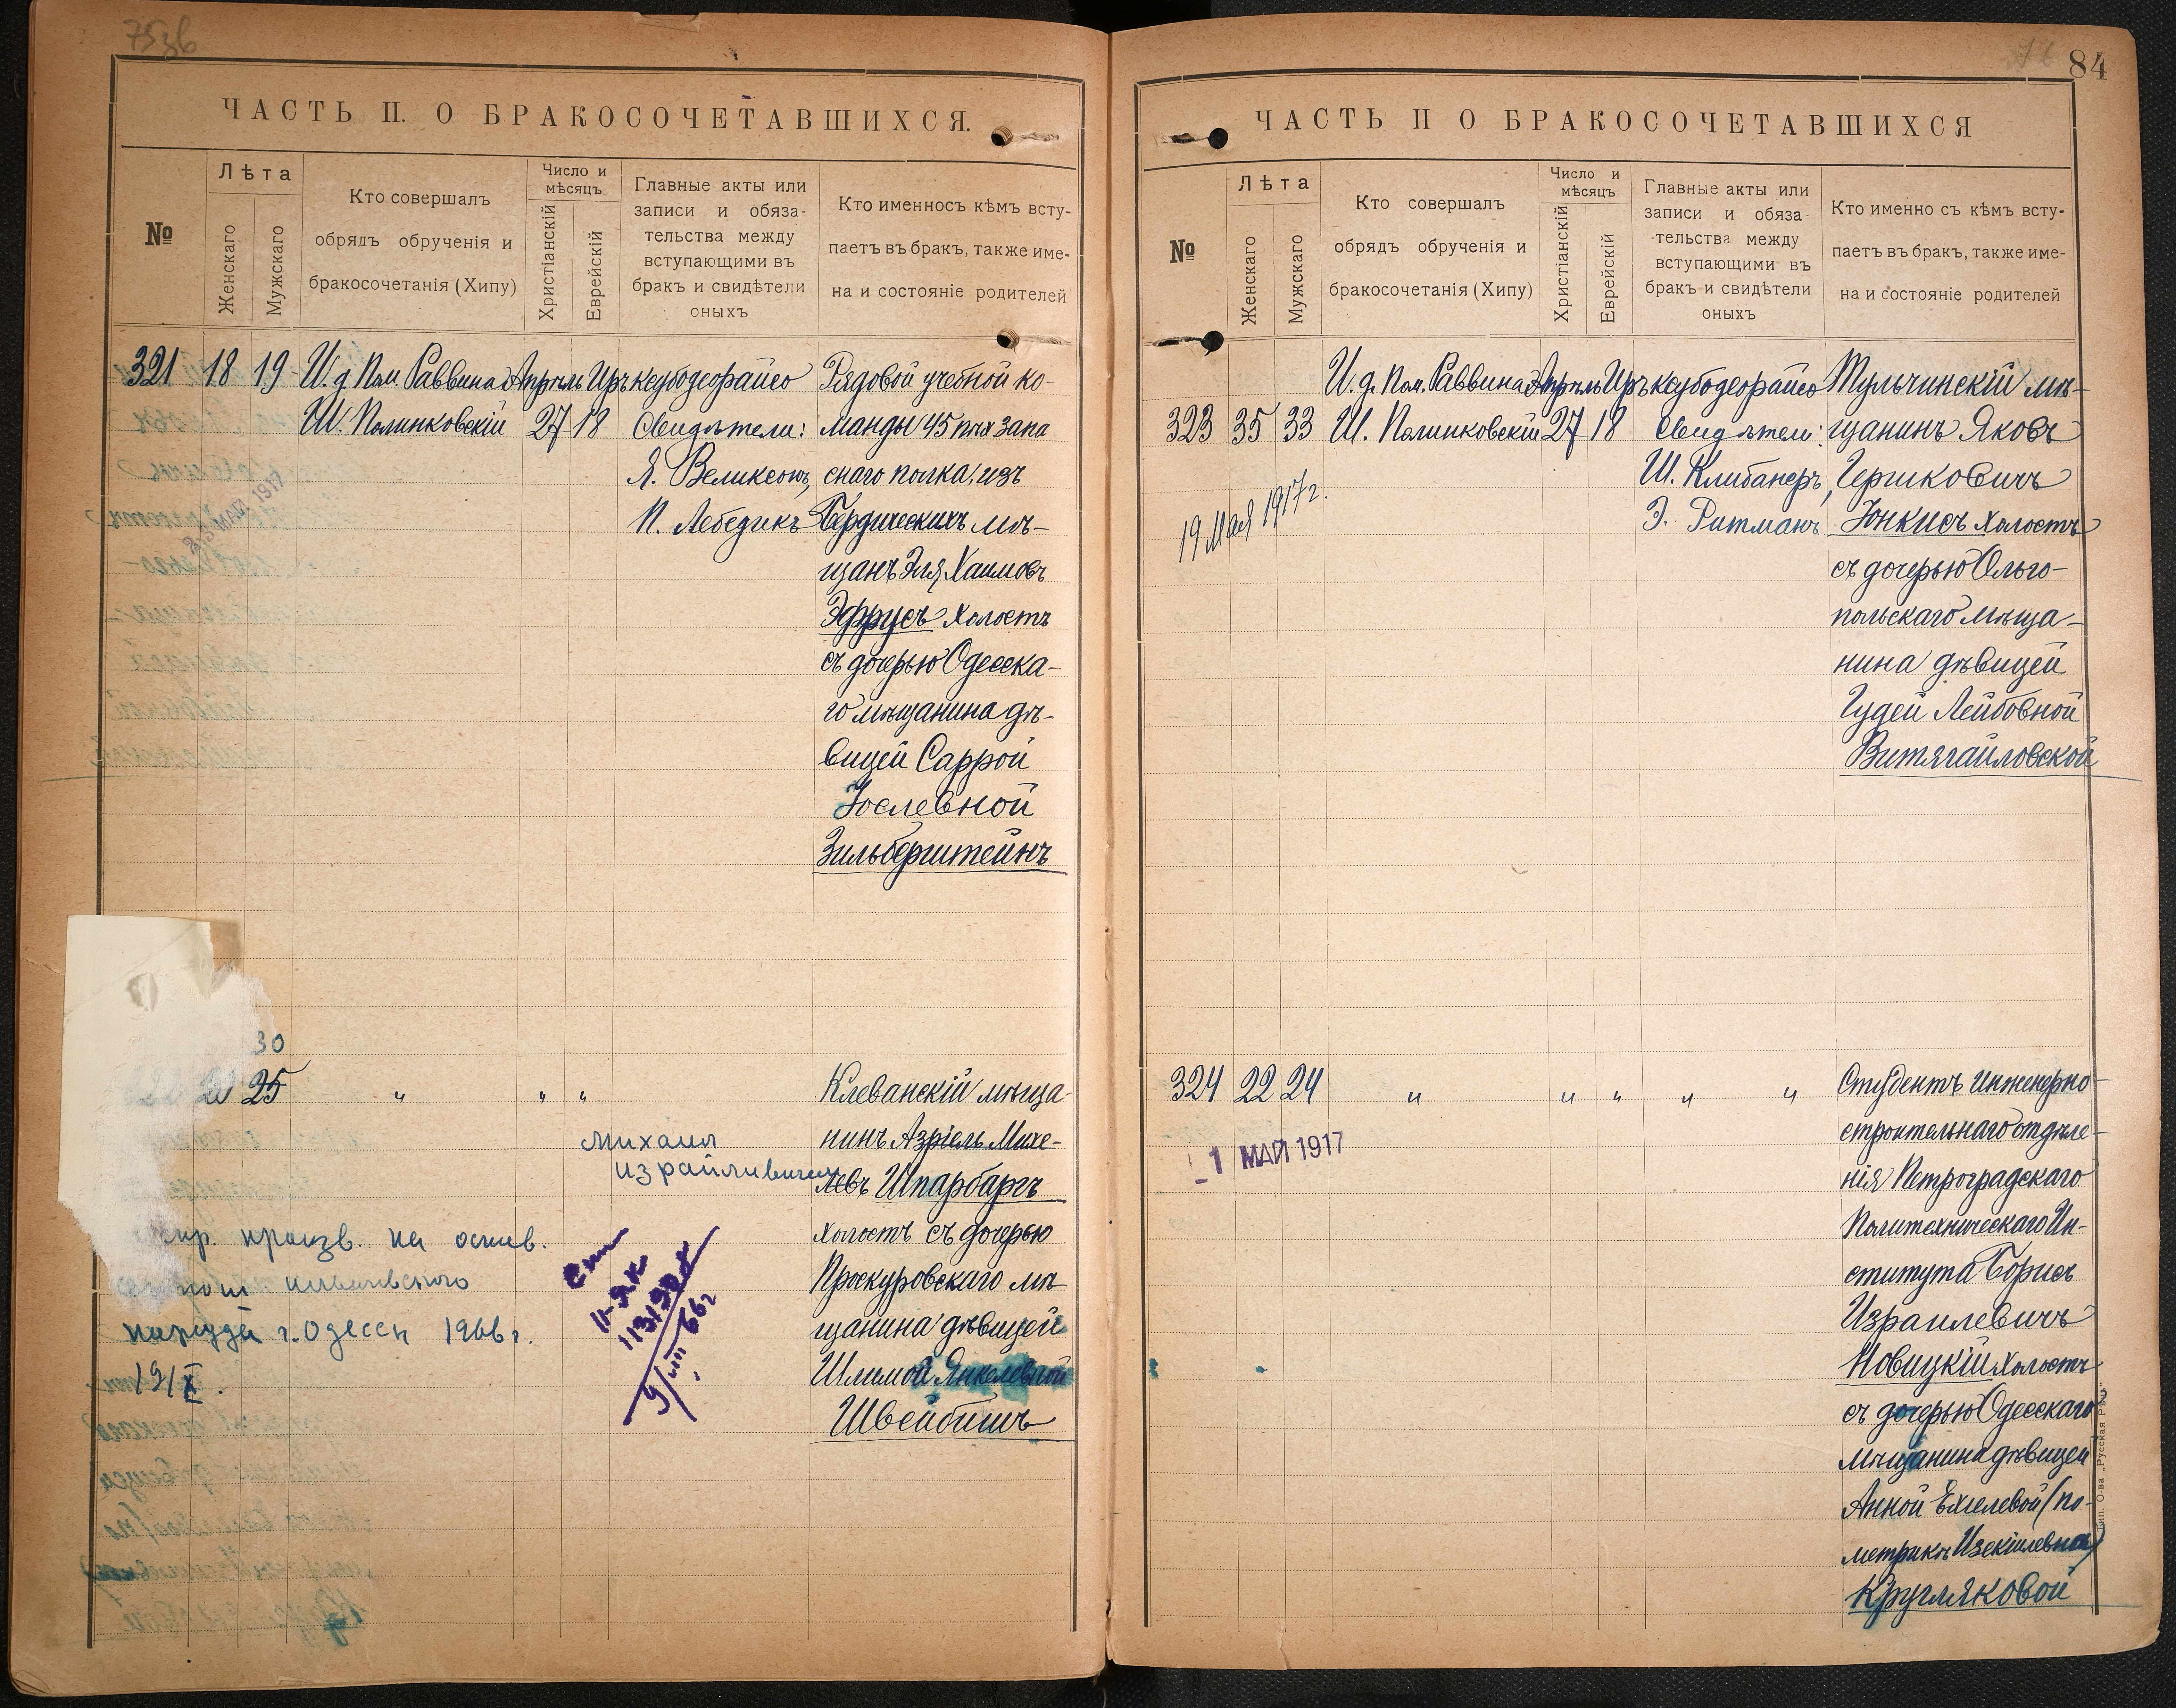 ЧАСТЬ II. О БРАКОСОЧЕТАВШИХСЯ.
№
Лѣта
Женскаго
Мужскаго
Кто совершалъ
обрядъ обрученія и
бракосочетанія (Хипу)
Число и
мѣсяцъ
Христіанскій
Еврейскій
Главные акты или
записи и обяза-
тельства между
вступающими въ
бракъ и свидѣтели
оныхъ
Кто именносъ кѣмъ всту-
паетъ въ бракъ, также име-
на и состояніе родителей
321 18 19
И. д. Пом. Раввина
Ш. Полинковскій
Апрѣль
27
Иръ
18
ксубодеорайсо
Свидѣтели:
Я. Великсонъ,
П. Лебедикъ
Рядовой учебной ко-
манды 45 пѣх запа
снаго полка, изъ
Бердическихъ мѣ-
щанъ Эля Хаимовъ
Эфрусъ холостъ
съ дочерью Одесска-
го мѣщанина дѣ-
вицей Саррой
Іослевной
Зильберштейнъ
30
25
" " "
Михаил
Израйливичем
Клеванскій мѣща-
нинъ Азріель Михе-
левъ Шпарбаргъ
холостъ съ дочерью
Проскуровскаго мѣ-
щанина дѣвицей
Шлимой Янкелевной
Швейбишъ
произв. на основ.
г. Одессы 1966 г.
19/X.
9/VIII 66г
84
ЧАСТЬ II О БРАКОСОЧЕТАВШИХСЯ
№
Лѣта
Женскаго
Мужскаго
Кто совершалъ
обрядъ обрученія и
бракосочетанія (Хипу)
Число и
мѣсяцъ
Христіанскій
Еврейскій
Главные акты или
записи и обяза
тельства между
вступающими въ
бракъ и свидѣтели
оныхъ
Кто именно съ кѣмъ всту-
паетъ въ бракъ, также име-
на и состояніе родителей
323 35 33
И. д. Пом. Раввина
Ш. Полинковскій
Апрѣль
27
Иръ
18
ксубодеорайсо
Свидѣтели:
Ш. Клибанеръ,
Э. Ритманъ
19 Мая 1917 г.
Тульчинскій мѣ-
щанинъ Яковъ
Гершковичъ
Іонкисъ холостъ
съ дочерью Ольго-
польскаго мѣща-
нина дѣвицей
Гудей Лейбовной
Витягайловской
324 22 24
" " " " "
1 МАЙ 1917
Студентъ Инженерно-
строительнаго отдѣле-
нія Петроградскаго
Политехническаго Ин-
ститута Борисъ
Израилевичъ
Новицкій холостъ
съ дочерью Одесскаго
мѣщанина дѣвицей
Анной Ехілевой (по
метрикѣ Изекіилевна)
Кругляковой